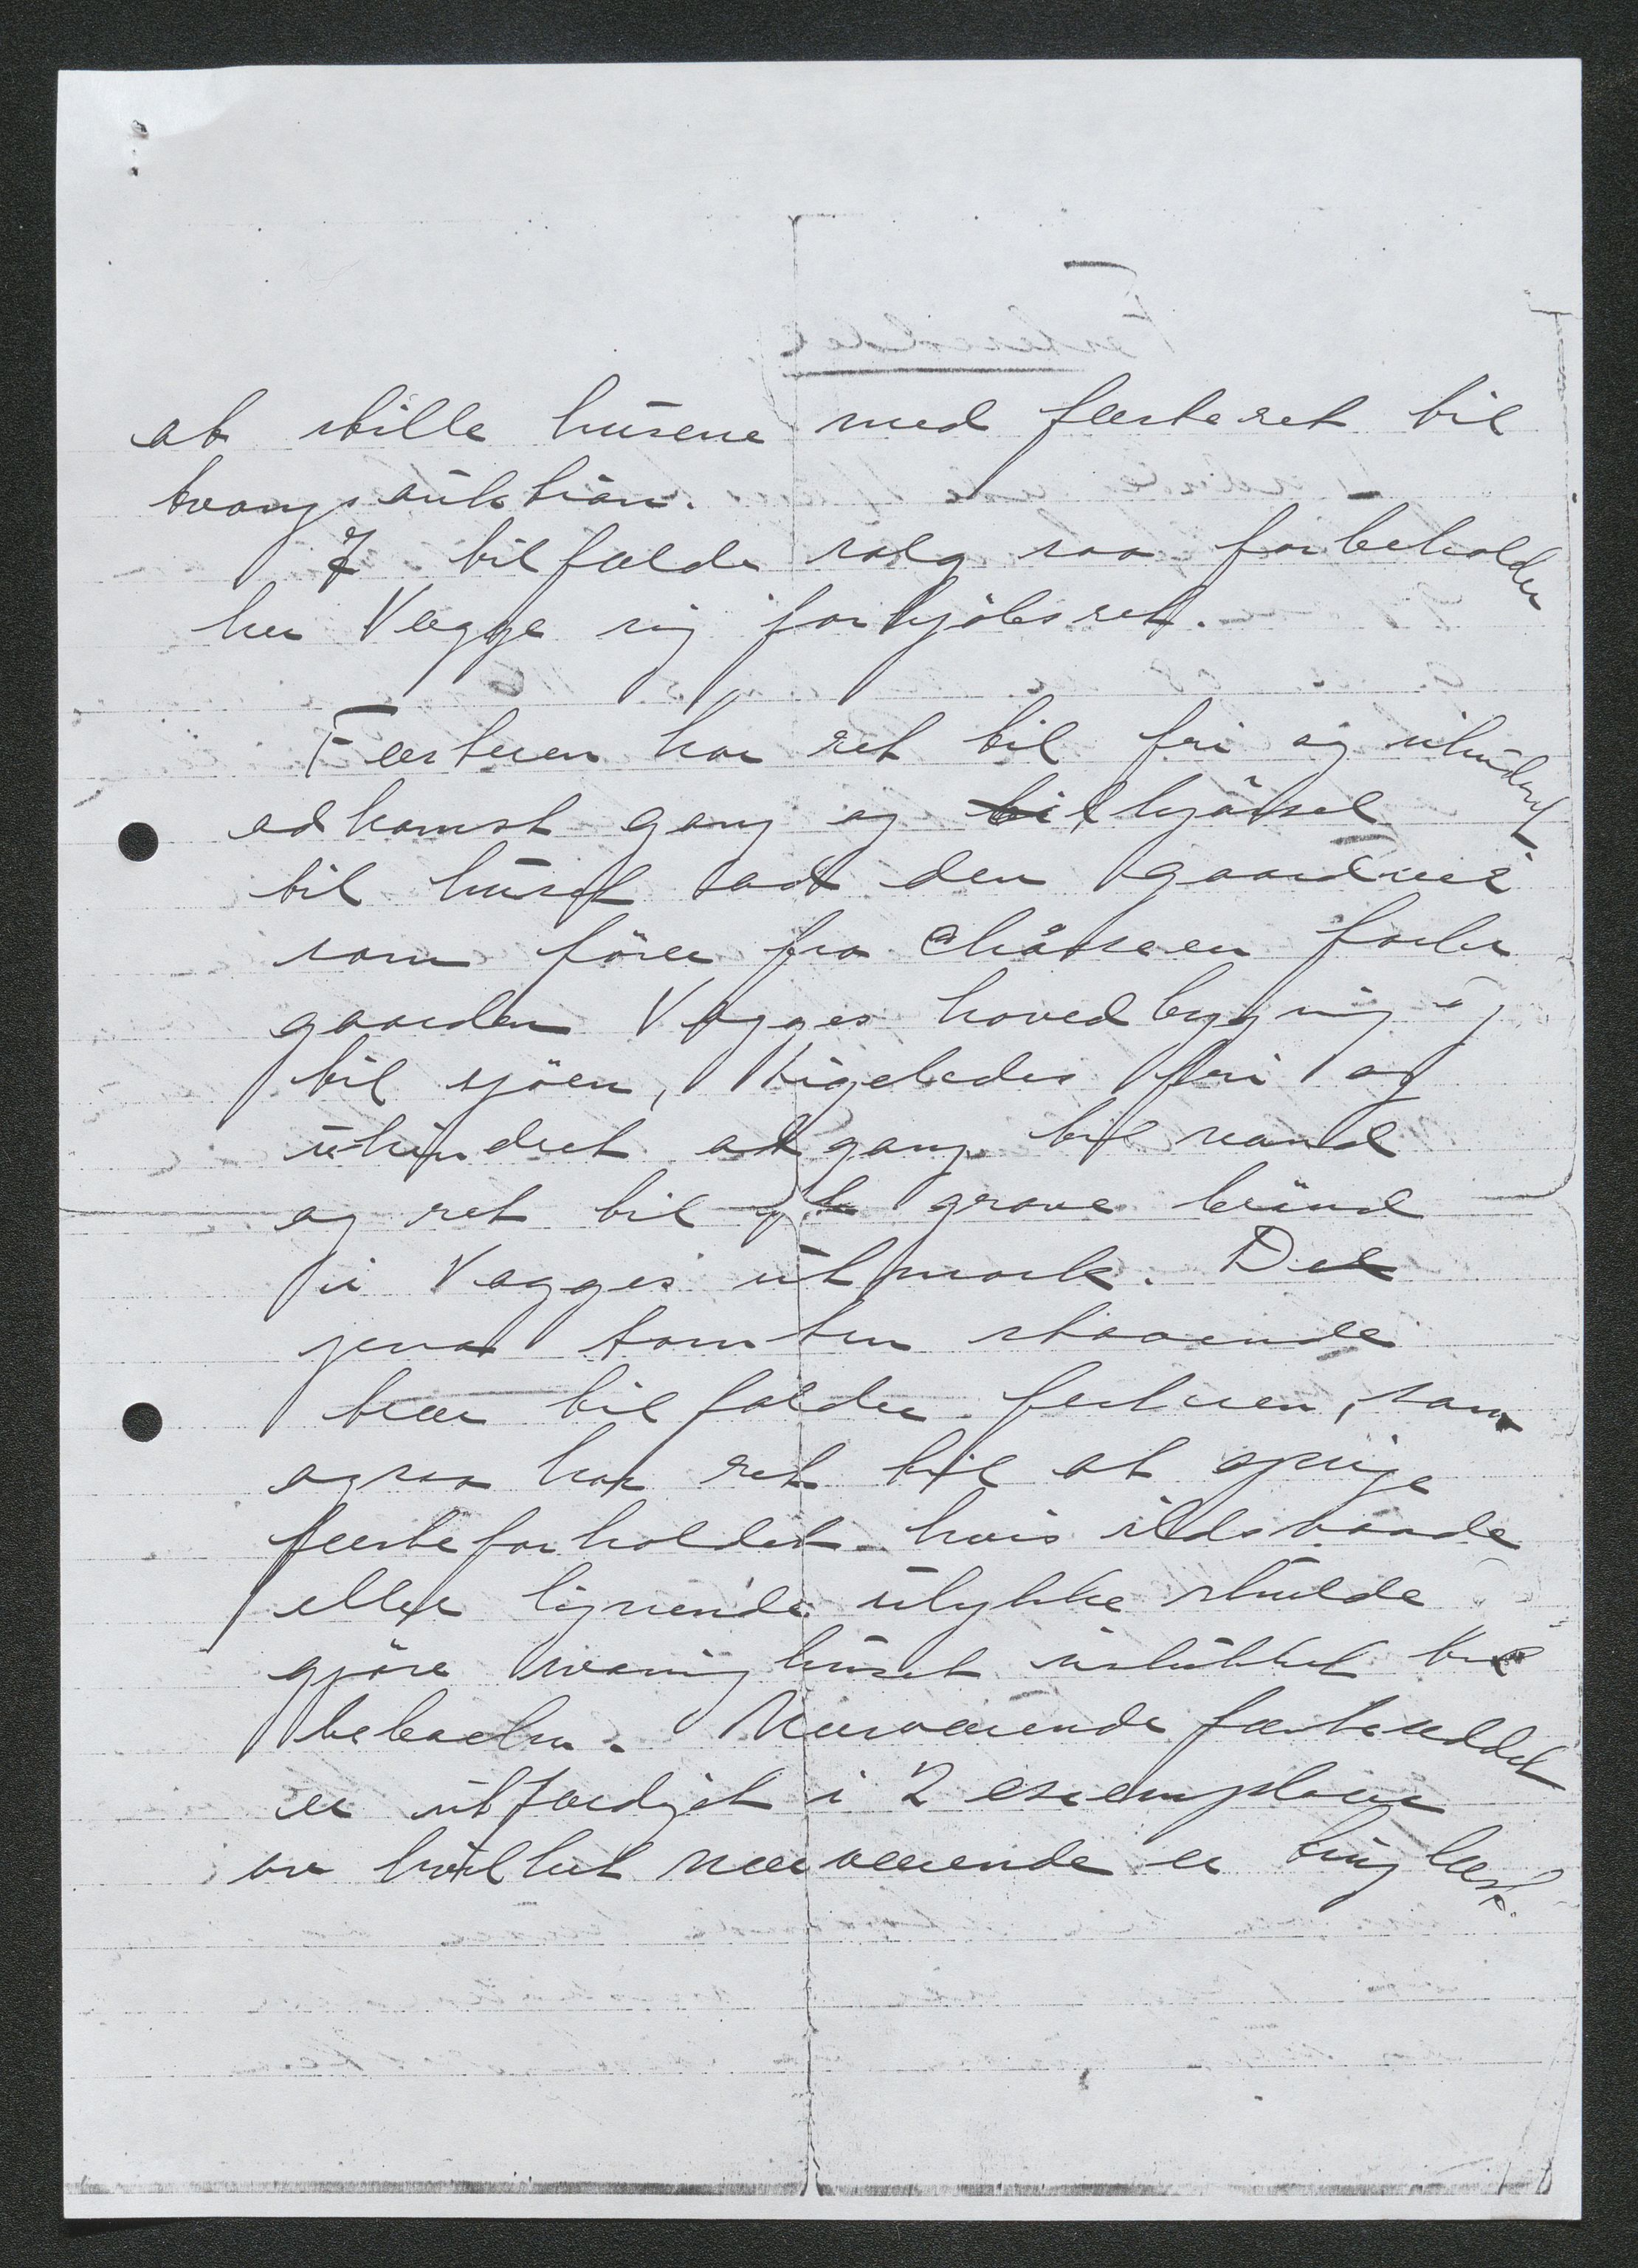 at stille husene med festeret til
tvangsauktion.
I tilfælde salg saa forbeholder
her Vegge sig forkjøbsret.
Festeren har ret til fri og uhindret
adkomst gang og tilkjørsel
til huset ad den gaardvei
som fører fra chåuseen forbi
gaarden Vegges hovedbygning og
til sjøen, ligeledes fri og
uhindret adgang til vand
og ret til grave brønd
i Vegges utmark. De
paa tomten staaende
trær tilfalder festeren, som
ogsaa har ret til at opsige
festeforholdet hvis ildsvaade
eller lignende ulykke skulde
gjøre vaaninghuset uskikket til
beboelse. Nærværende festeseddel
er utfærdiget i 2 exemplarer
av hvilket nærværende er tinglæst.